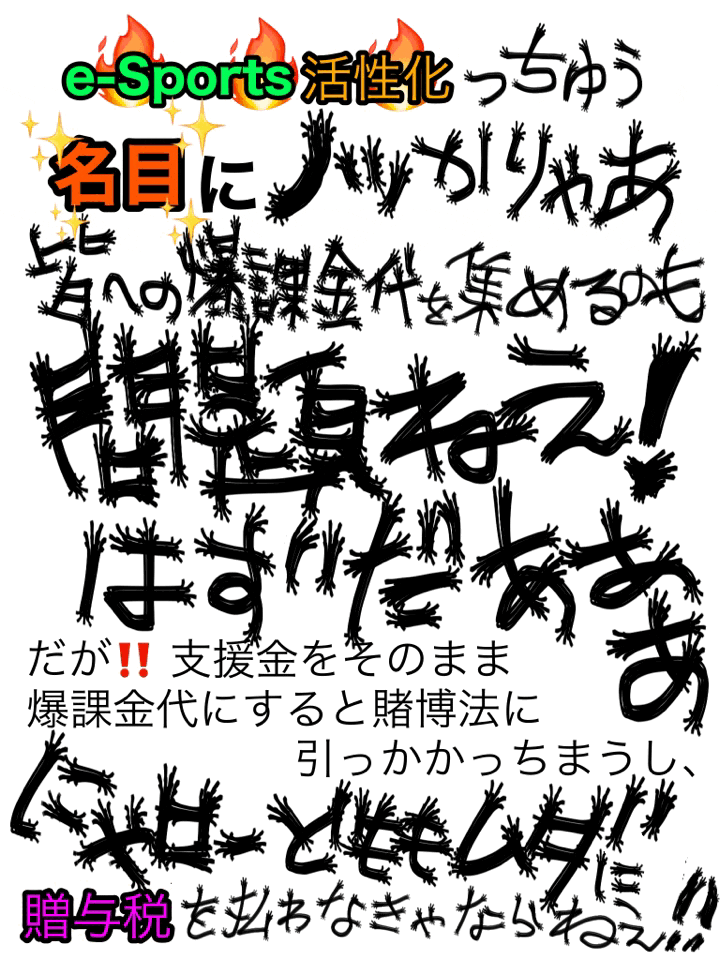 e-Sports 活性化っちゅう
名目にノッかりゃあ
皆への爆課金代を集めるのも
問題ねえ!
はずだああ
あ
だが‼️ 支援金をそのまま
爆課金代にすると賭博法に
引っかかっちまうし、
ヤローどももムダに
贈与税を払わなきゃならねえ!!